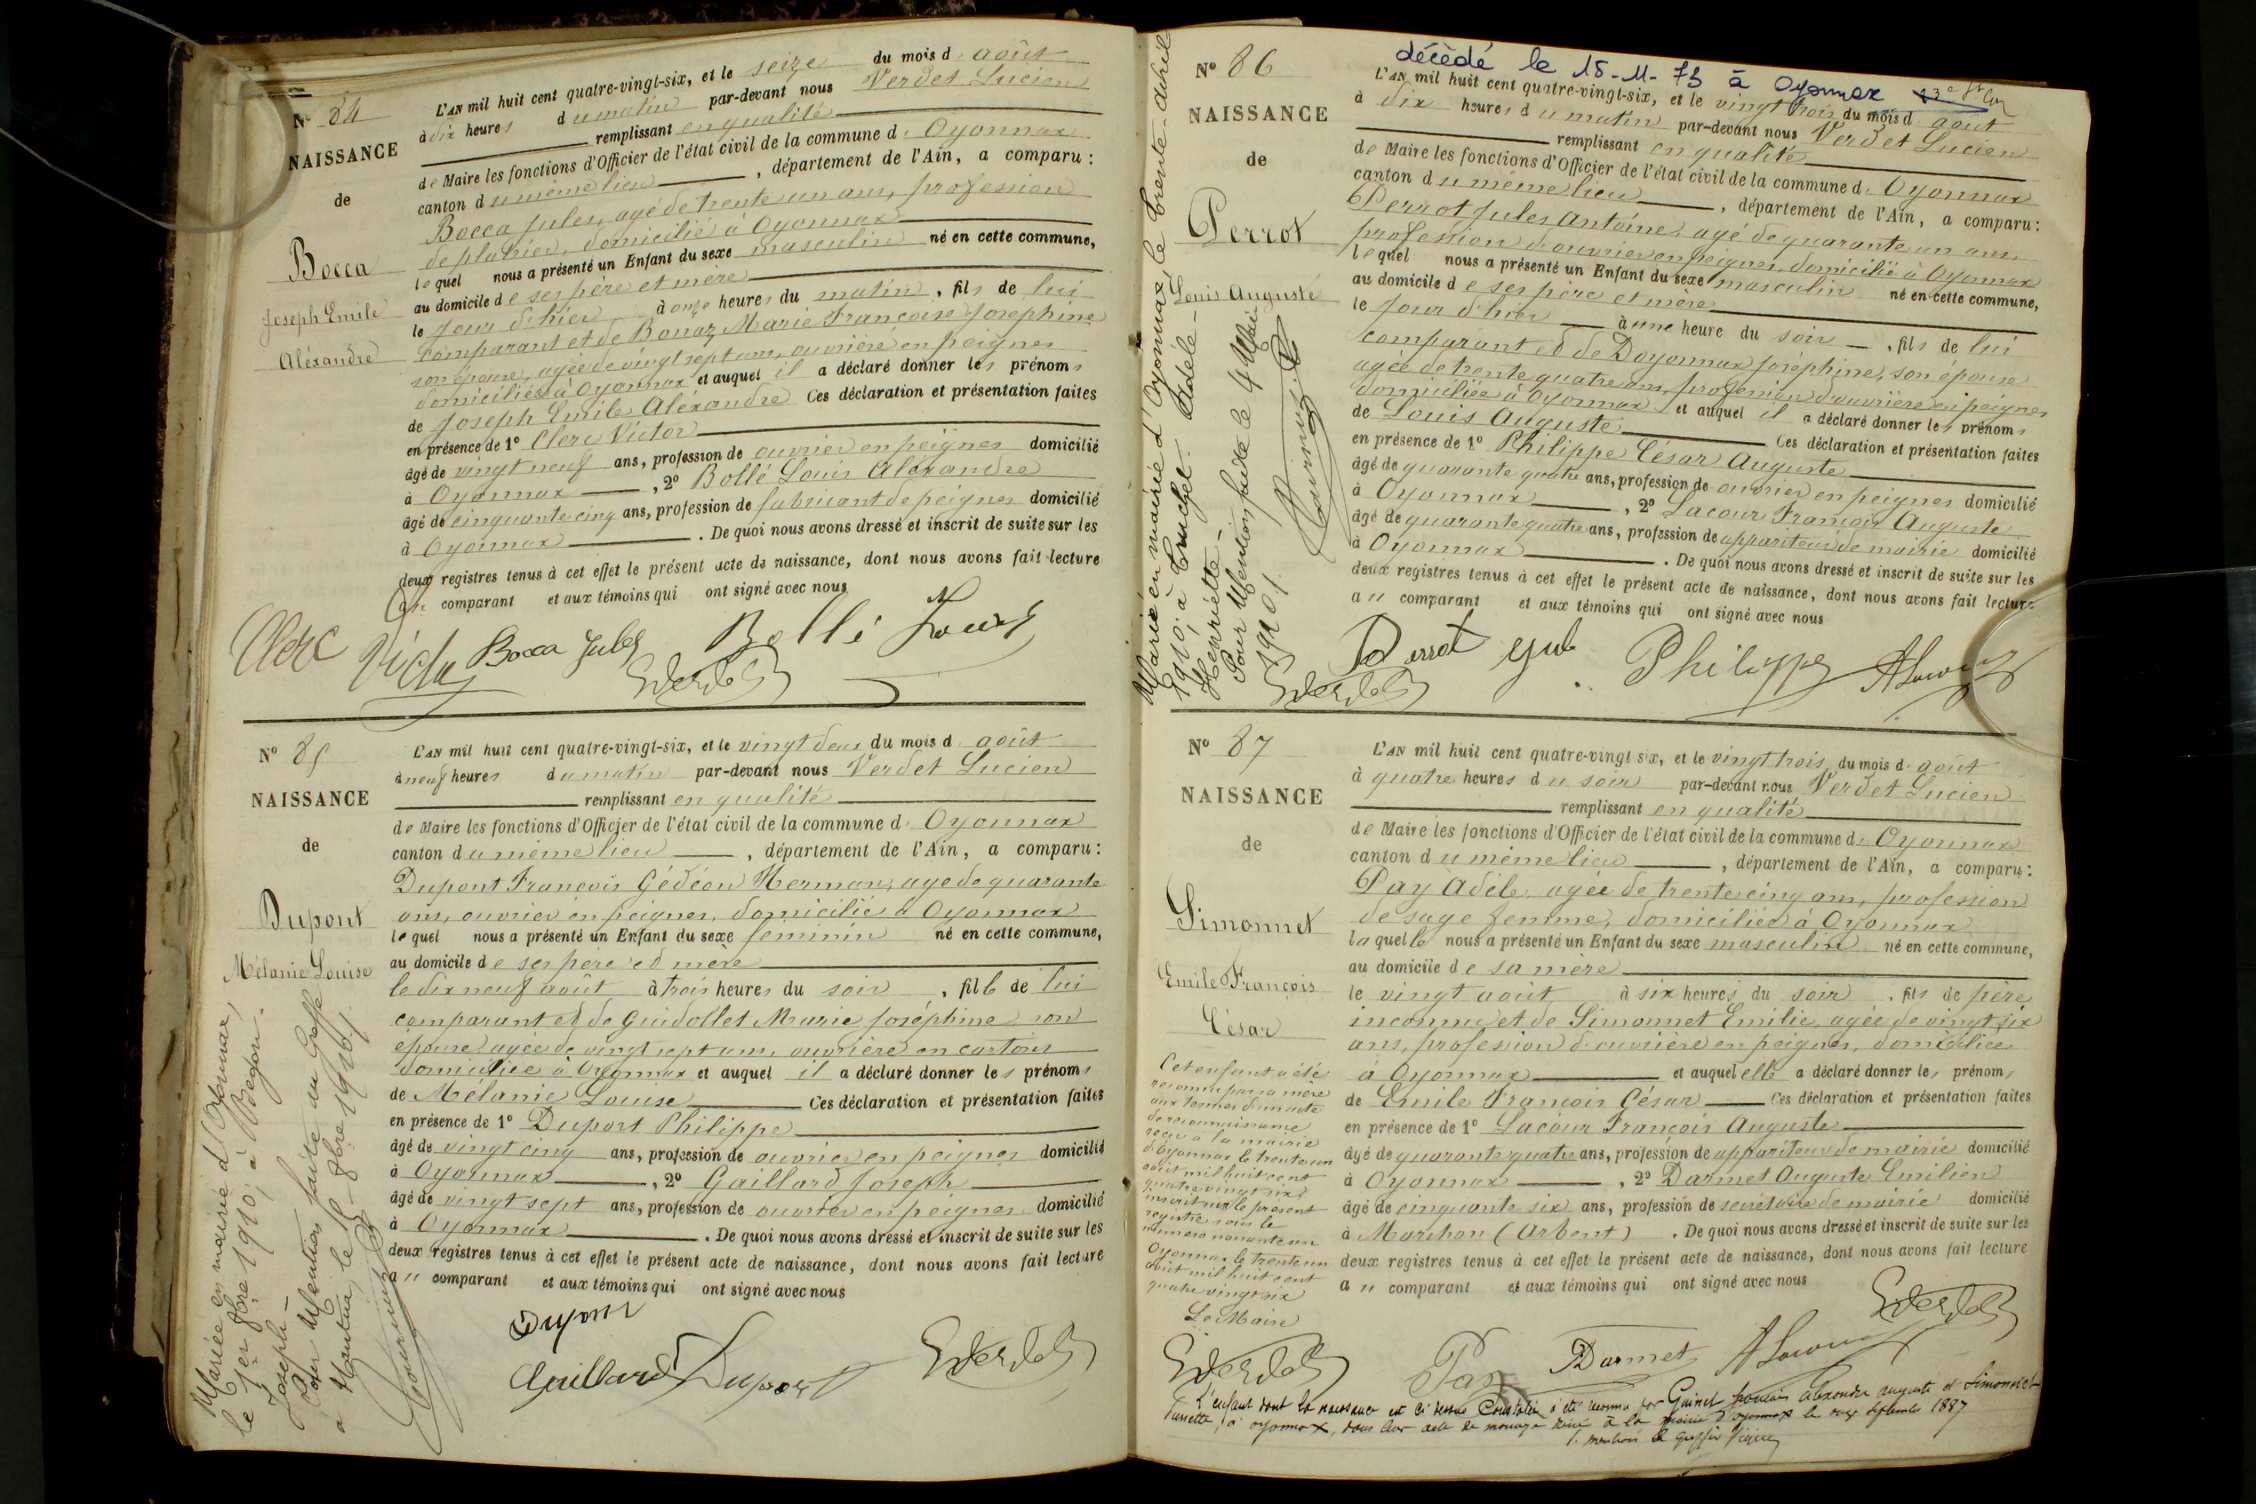 N° 84
NAISSANCE
de
Bocca
Joseph Emile
Aléxandre
L'AN mil huit cent quatre-vingt-six, et le seize du mois d'août
à dix heures du matin par-devant nous Verdet Lucien
remplissant en qualité
de Maire les fonctions d'Officier de l'état civil de la commune d'Oyonnax
canton du même lieu, département de l'Ain, a comparu :
Bocca Jules, agé de trente un ans, profession
de platrier, domicilié à Oyonnax
lequel nous a présenté un Enfant du sexe masculin né en cette commune,
au domicile de ses père et mère
le jour d'hier à onze heures du matin, fils de lui
comparant et de Bonaz Marie Françoise Joséphine
son épouse, agée de vingt sept ans, ouvrière en peignes
domiciliés à Oyonnax et auquel il a déclaré donner les prénoms
de Joseph Emile Aléxandre Ces déclaration et présentation faites
en présence de 1° Clerc Victor
âgé de vingt neuf ans, profession de ouvrier en peignes domicilié
à Oyonnax, 2° Bollé Louis Aléxandre
âgé de cinquante cinq ans, profession de fabricant de peignes domicilié
à Oyonnax. De quoi nous avons dressé et inscrit de suite sur les
deux registres tenus à cet effet le présent acte de naissance, dont nous avons fait lecture
au comparant et aux témoins qui ont signé avec nous
Clerc Victor Bocca Jules Bollé Louis
Verdet
N° 85
NAISSANCE
de
Dupont
Mélanie Louise
L'AN mil huit cent quatre-vingt-six, et le vingt deux du mois d'août
à neuf heures du matin par-devant nous Verdet Lucien
remplissant en qualité
de Maire les fonctions d'Officier de l'état civil de la commune d'Oyonnax
canton du même lieu, département de l'Ain, a comparu :
Dupont François Gédéon Herman, agé de quarante
ans, ouvrier en peignes, domicilié à Oyonnax
lequel nous a présenté un Enfant du sexe féminin né en cette commune,
au domicile de ses père et mère
le dix neuf août à trois heures du soir, fille de lui
comparant et de Guidollet Marie Joséphine son
épouse, agée de vingt sept ans, ouvrière en cartons
domiciliée à Oyonnax et auquel il a déclaré donner les prénoms
de Mélanie Louise Ces déclaration et présentation faites
en présence de 1° Duport Philippe
âgé de vingt cinq ans, profession de ouvrier en peignes domicilié
à Oyonnax, 2° Gaillard Joseph
âgé de vingt sept ans, profession de ouvrier en peignes domicilié
à Oyonnax. De quoi nous avons dressé et inscrit de suite sur les
deux registres tenus à cet effet le présent acte de naissance, dont nous avons fait lecture
au comparant et aux témoins qui ont signé avec nous
Dupont
Gaillard Duport Verdet
Mariée en mairie d'Oyonnax,
le 1er 8bre 1910, à
Joseph.
Pour Mention faite au Greffe
à Nantua, le
décédé le 15-11-73 à Oyonnax
N° 86
NAISSANCE
de
Perrot
Louis Auguste
L'AN mil huit cent quatre-vingt-six, et le vingt trois du mois d'août
à dix heures du matin par-devant nous Verdet Lucien
remplissant en qualité
de Maire les fonctions d'Officier de l'état civil de la commune d'Oyonnax
canton du même lieu, département de l'Ain, a comparu :
Perrot Jules Antoine, agé de quarante un ans,
profession d'ouvrier en peignes, domicilié à Oyonnax
lequel nous a présenté un Enfant du sexe masculin né en cette commune,
au domicile de ses père et mère
le jour d'hier à une heure du soir, fils de lui
comparant et de Doyonnax Joséphine, son épouse
agée de trente quatre ans, profession d'ouvrière en peignes
domiciliée à Oyonnax et auquel il a déclaré donner les prénoms
de Louis Auguste Ces déclaration et présentation faites
en présence de 1° Philippe César Auguste
âgé de quarante quatre ans, profession de ouvrier en peignes domicilié
à Oyonnax, 2° Lacour François Auguste
âgé de quarante quatre ans, profession de appariteur de mairie domicilié
à Oyonnax. De quoi nous avons dressé et inscrit de suite sur les
deux registres tenus à cet effet le présent acte de naissance, dont nous avons fait lecture
au comparant et aux témoins qui ont signé avec nous
Perrot Jules Philippe ALacour
Verdet
Marié en mairie d'Oyonnax, le trente avril
1910, à
Henriette.
Pour Mention faite le 4 Mai
1910.
N° 87
NAISSANCE
de
Simonnet
Emile François
César
L'AN mil huit cent quatre-vingt-six, et le vingt trois du mois d'août
à quatre heures du soir par-devant nous Verdet Lucien
remplissant en qualité
de Maire les fonctions d'Officier de l'état civil de la commune d'Oyonnax
canton du même lieu, département de l'Ain, a comparu :
Pay Adèle, agée de trente cinq ans, profession
de sage femme, domiciliée à Oyonnax
laquelle nous a présenté un Enfant du sexe masculin né en cette commune,
au domicile de sa mère
le vingt août à six heures du soir, fils de père
inconnu et de Simonnet Emilie, agée de vingt six
ans, profession d'ouvrière en peignes, domiciliée
à Oyonnax et auquel elle a déclaré donner les prénoms
de Emile François César Ces déclaration et présentation faites
en présence de 1° Lacour François Auguste
âgé de quarante quatre ans, profession de appariteur de mairie domicilié
à Oyonnax, 2° Darmet Auguste Emilien
âgé de cinquante six ans, profession de secrétaire de mairie domicilié
à Marchon (Arbent). De quoi nous avons dressé et inscrit de suite sur les
deux registres tenus à cet effet le présent acte de naissance, dont nous avons fait lecture
au comparant et aux témoins qui ont signé avec nous
Cet enfant a été
reconnu par sa mère
aux termes d'un acte
de reconnaissance
reçu à la mairie
d'Oyonnax le trente un
août mil huit cent
quatre vingt six
inscrit sur le présent
registre sous le
numéro nonante un
Oyonnax le trente un
août mil huit cent
quatre vingt six
Le Maire
Verdet
Pay Darmet ALacour Verdet
L'enfant dont la naissance est ci dessus Constatée a été reconnu par Guinet françois alexandre auguste et Simonnet
à oyonnax, dans leur acte de mariage reçu à la mairie d'oyonnax le onze septembre 1887